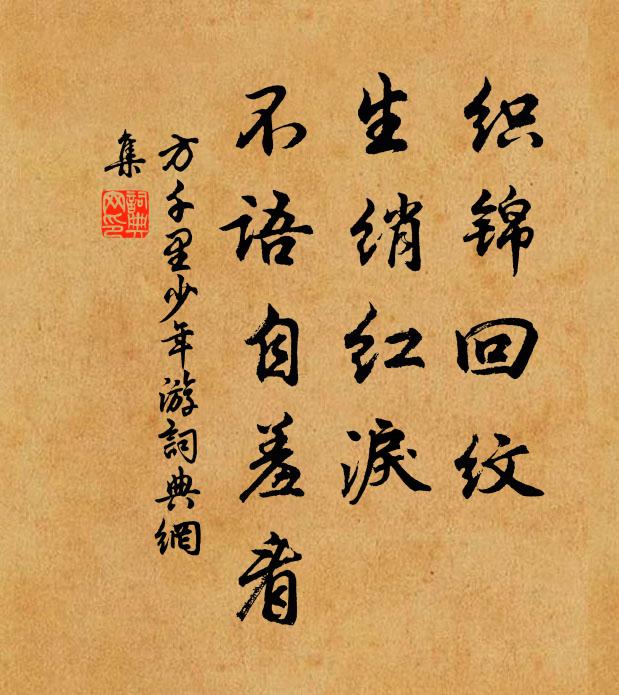 织锦回纹
生绡红淚
不語自羞看
方千里少年游詞典網
集
詞典
网印